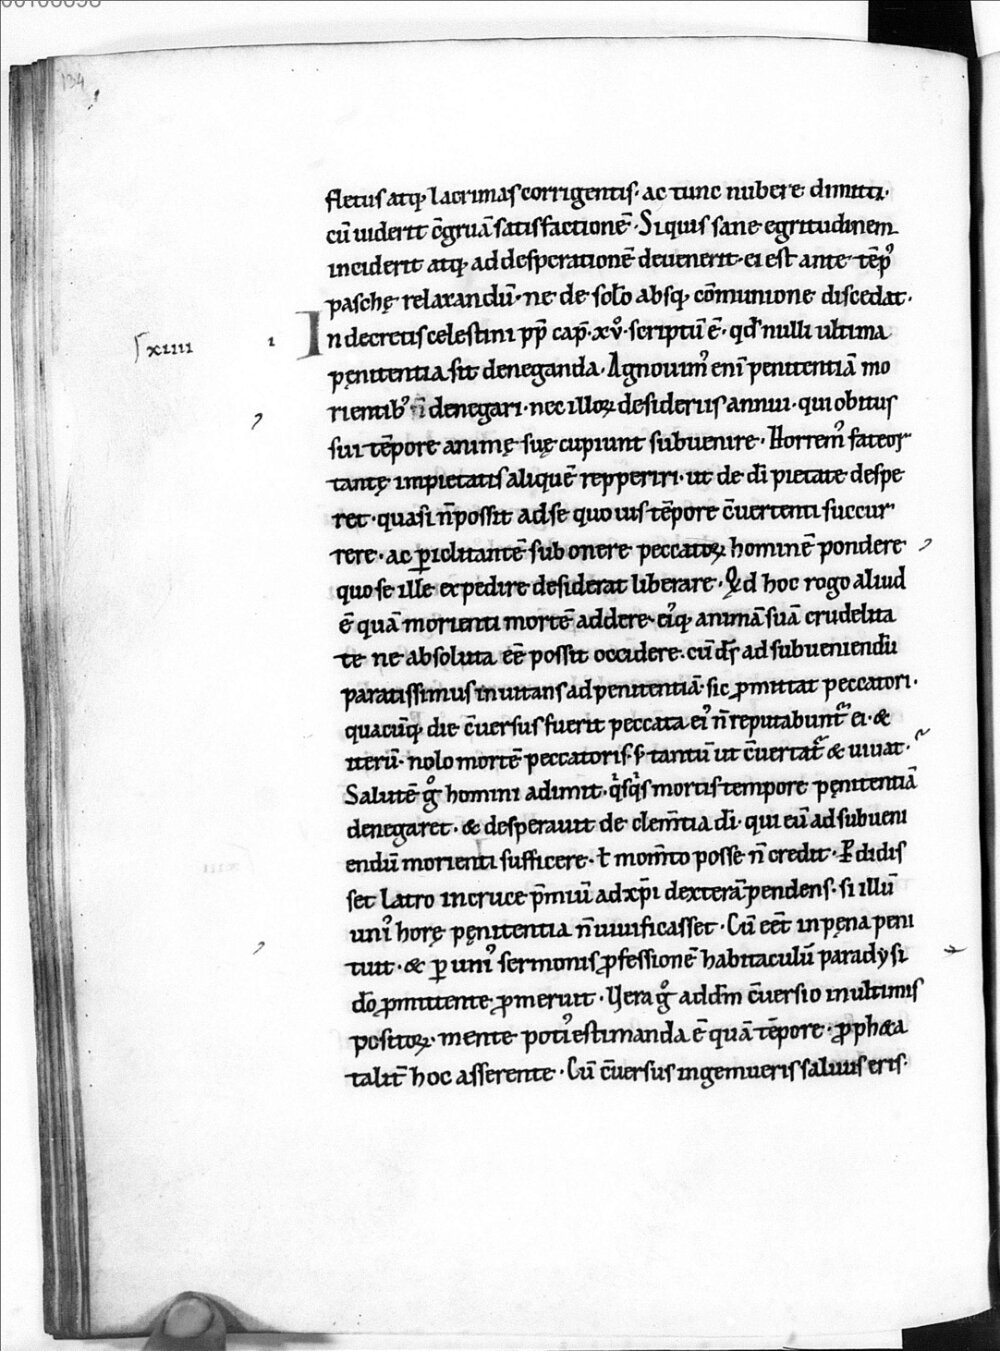 134
fletus atq; lacrimas corrigentis· ac tunc nubere dimitti·
cū uiderit c̄gruā satisfactionē· Siquis sane egritudinem
inciderit atq; ad desperationē deuenerit· ei est ante tēp᾿
paschę relaxandū· ne de sclo absq; cōmunione discedat·
xiiii
ı
In decretis celestini pp̄ cap̄· xv̊· scriptū ē· qd̄ nulli ultima
pęnitentia sit deneganda· Agnouim᾿ eni penitentiā mo
rientib᾿ n̄ denegari· nec illoꝝ desideriis annui· qui obitus
sui tēpore animę suę cupiunt subuenire· Horrem᾿ fateor
tantę impietatis aliquē repperiri· ut de dī pietate despe
ret· quasi n̄ possit ad se quo uis tēpore c̄uertenti succur
rere· ac ꝑiclitantē sub onere peccatoꝝ hominē pondere
quo se ille expedire desiderat liberare· Qd hoc rogo aliud
ē quā morienti mortē addere· ei᾿q; animā suā crudelita
te ne absoluta eē possit occidere· cū dſ̄ ad subueniendū
paratissimus inuitans ad penitentiā· sic ꝓmittat peccatori·
quacūq; die c̄uersus fuerit peccata ei᾿ n̄ reputabunt̄ ei· &
iterū· nolo mortē peccatoris· ſ; tantū ut c̄uertat̄ & uiuat·
Salutē gͦ homini adimit· qͥsqͥs mortis tempore pęnitentiā
denegaret· & desperauit de clem̄tia dī· qui eū ad subueni
endū morienti sufficere· ł mom̄to posse n̄ credit· Pdidis
set latro in cruce p̄miū ad xp̄i dexterā pendens· si illū
uni᾿ horę pęnitentia n̄ uiuificasset· Cū eēt in pęna peni
tuit· & ꝑ uni᾿ sermonis ꝓfessionē habitaculū paradysi
dō ꝓmittente ꝓmeruit· Vera gͦ ad dm̄ c̄uersio in ultimis
positoꝝ· mente poti᾿ estimanda ē quā tēpore· ꝓph&a
talit̄ hoc asserente· Cū c̄uersus ingemueris saluus eris·